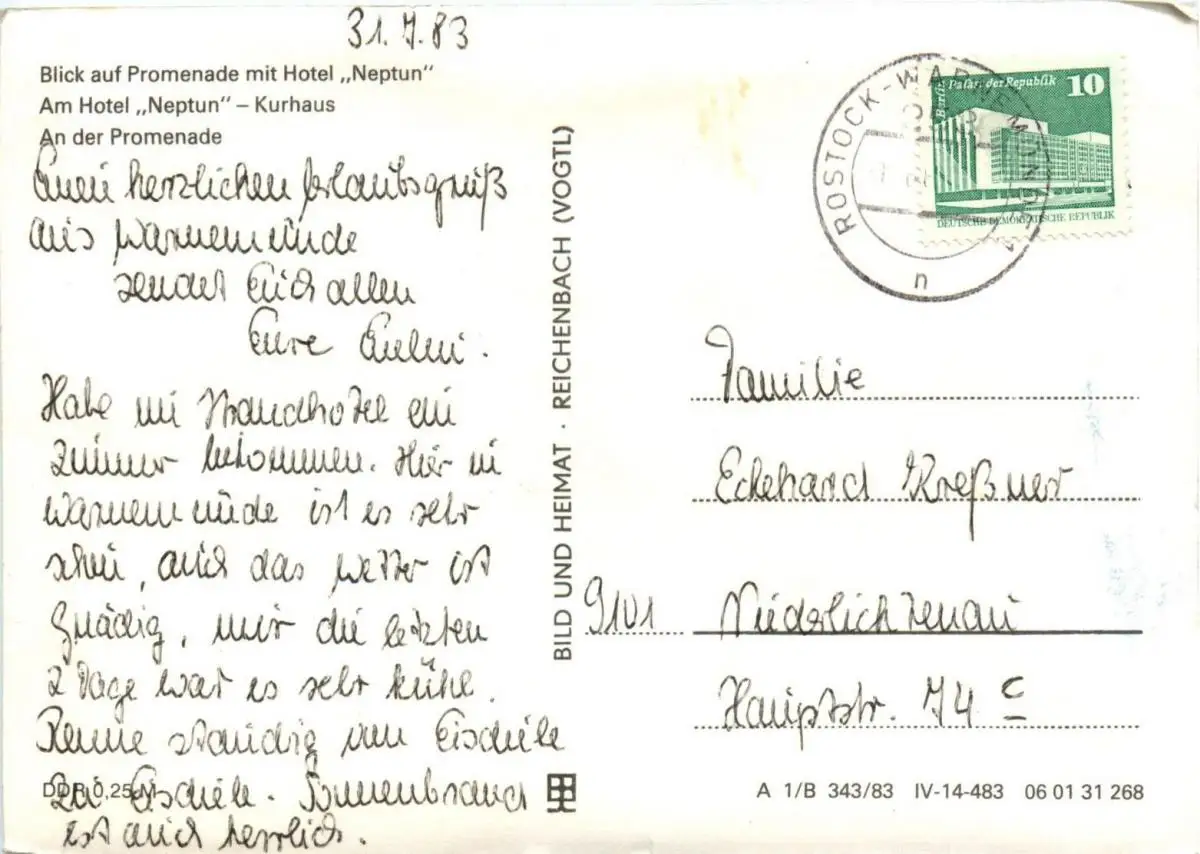 31.7.83
Blick auf Promenade mit Hotel „Neptun“
Am Hotel „Neptun“ – Kurhaus
An der Promenade
Einen herzlichen Urlaubsgruß
aus Warnemünde
sendet Euch allen
Eure
Habe im Strandhotel ein
Zimmer bekommen. Hier in
Warnemünde ist es sehr
schön, auch das Wetter ist
gnädig, nur die letzten
2 Tage war es sehr kühl.
Renne ständig von Eisdiele
zu Eisdiele. Sonnenbrand
ist auch herrlich.
DDR 0,25 M
BILD UND HEIMAT · REICHENBACH (VOGTL)
ROSTOCK-WARNEMÜNDE 1
n
Berlin Palast der Republik 10
DEUTSCHE DEMOKRATISCHE REPUBLIK
Familie
Eckehard Kreßner
9101 Niederlichtenau
Hauptstr. 74 c
A 1/B 343/83 IV-14-483 06 01 31 268